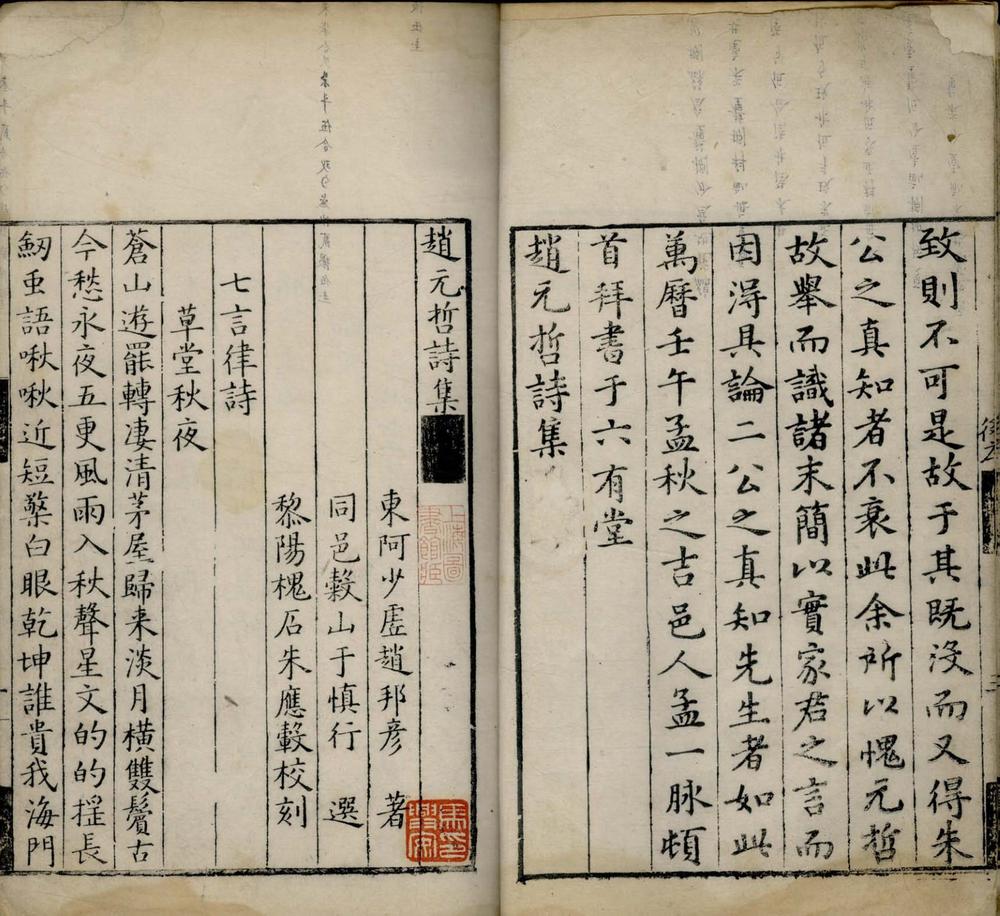 致則不可是故于其既沒而又得朱
公之真知者不衰此余所以愧元哲
故舉而識諸末簡以實家君之言而
因淂具論二公之真知先生者如此
萬曆壬午孟秋之吉邑人孟一脉頓
首拜書于六有堂
趙元哲詩集
趙元哲詩集
東阿少虛趙邦彦 著
同邑穀山于慎行 選
黎陽槐石朱應轂校刻
七言律詩
草堂秋夜
蒼山遊罷轉凄清茅屋歸来淡月横雙鬢古
今愁永夜五更風雨入秋聲星文的的摇長
劒虫語啾啾近短檠白眼乾坤誰貴我海門
上海圖書館藏